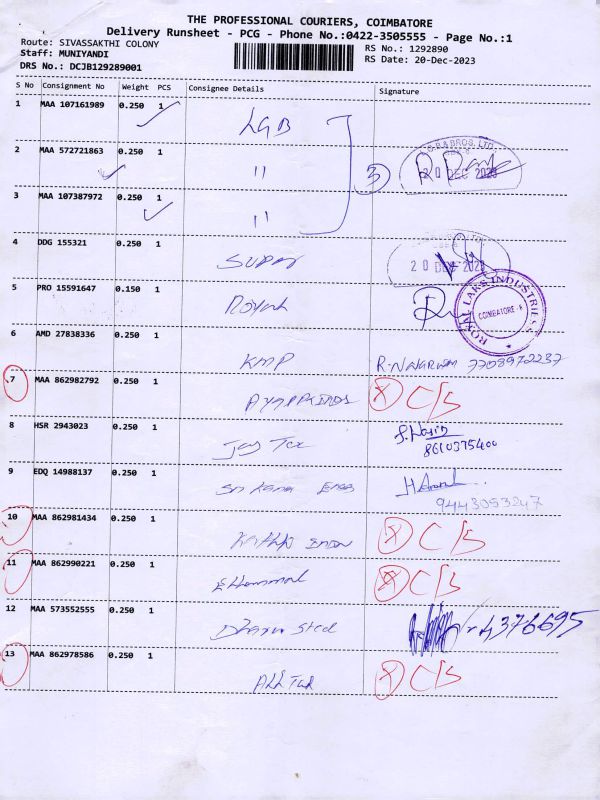 THE PROFESSIONAL COURIERS, COIMBATORE
Delivery Runsheet - PCG - Phone No.:0422-3505555 - Page No.:1
Route: SIVASSAKTHI COLONY
Staff: MUNIYANDI
DRS No.: DCJB129289001
RS No.: 1292890
RS Date: 20-Dec-2023
S No Consignment No Weight PCS Consignee Details Signature
1 MAA 107161989 0.250 1 LGB
2 MAA 572721863 0.250 1 "
3 MAA 107387972 0.250 1 "
3
20 DEC 2023
4 DDG 155321 0.250 1
20 DEC 2023
5 PRO 15591647 0.150 1 Royal
ROYAL LAKS INDUSTRIES
COIMBATORE
6 AMD 27838336 0.250 1 KMP 7708972237
7 MAA 862982792 0.250 1 C/S
8 HSR 2943023 0.250 1 Jay Tex
8610375400
9 EDQ 14988137 0.250 1 Sri
9443053247
10 MAA 862981434 0.250 1 C/S
11 MAA 862990221 0.250 1 C/S
12 MAA 573552555 0.250 1 Steel 4376695
13 MAA 862978586 0.250 1 C/S